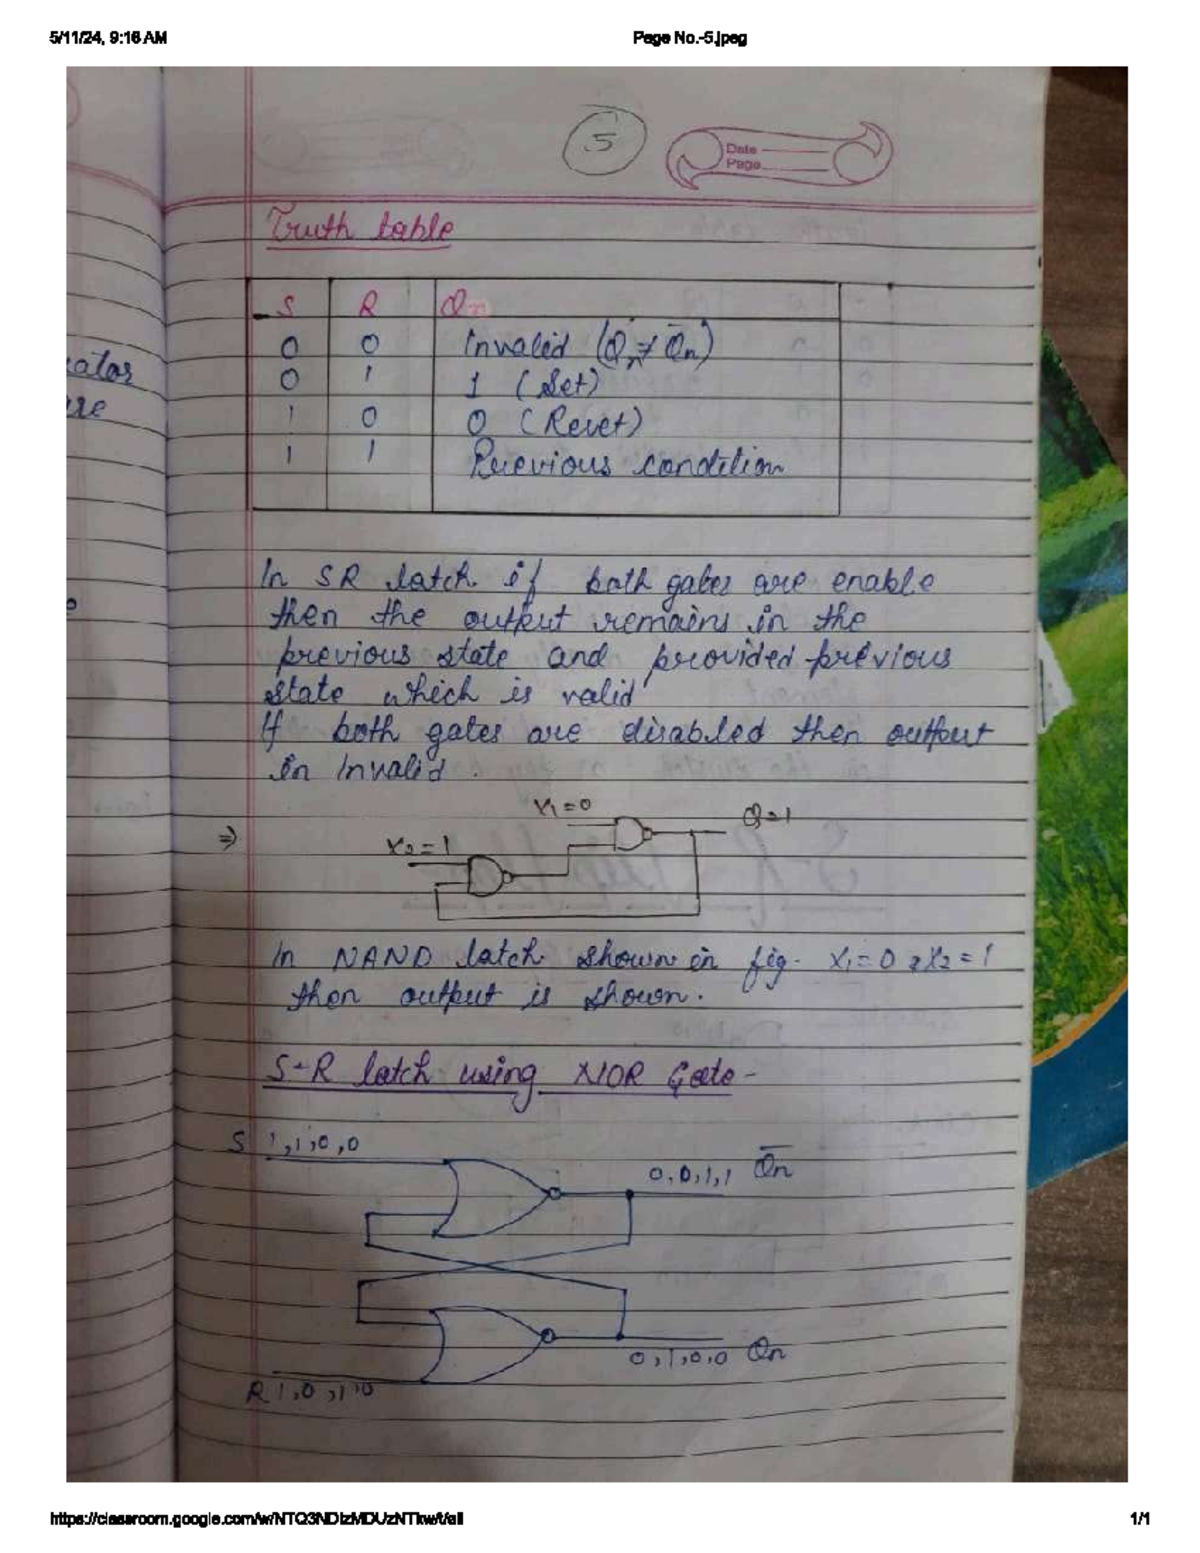 5/11/24, 9:16 AM Page No.-5.jpeg
5
Date
Page
Truth table
S R Qn
0 0 Invalid (Qn ≠ Q̅n)
0 1 1 (Set)
1 0 0 (Reset)
1 1 Previous condition
ator
are
In SR latch if both gates are enable
then the output remains in the
previous state and provided previous
state which is valid
If both gates are disabled then output
in Invalid.
X₁=0 Q=1
⇒ X₂=1
In NAND latch shown in fig. X₁=0, X₂=1
then output is shown.
S-R latch using NOR Gate-
S 1,1,0,0
0,0,1,1 Q̅n
0,1,0,0 Qn
R 1,0,1,0
https://classroom.google.com/w/NTQ3NDIzMDUzNTkw/t/all 1/1